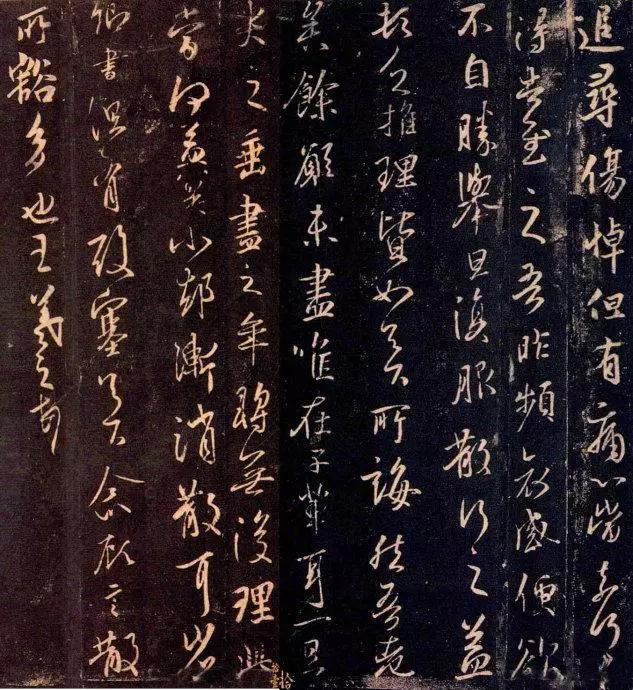 追尋傷悼但有痛心當奈何奈何
得告慰之吾昨頻哀感便欲
不自勝舉旦復服散行之益
頓乏推理皆如足下所誨然吾老
矣餘願未盡唯在子輩耳一旦
哭之垂盡之年轉無復理此
當何益冀小卻漸消散耳省
卿書但有酸塞足下念顧言散
所豁多也王羲之頓首